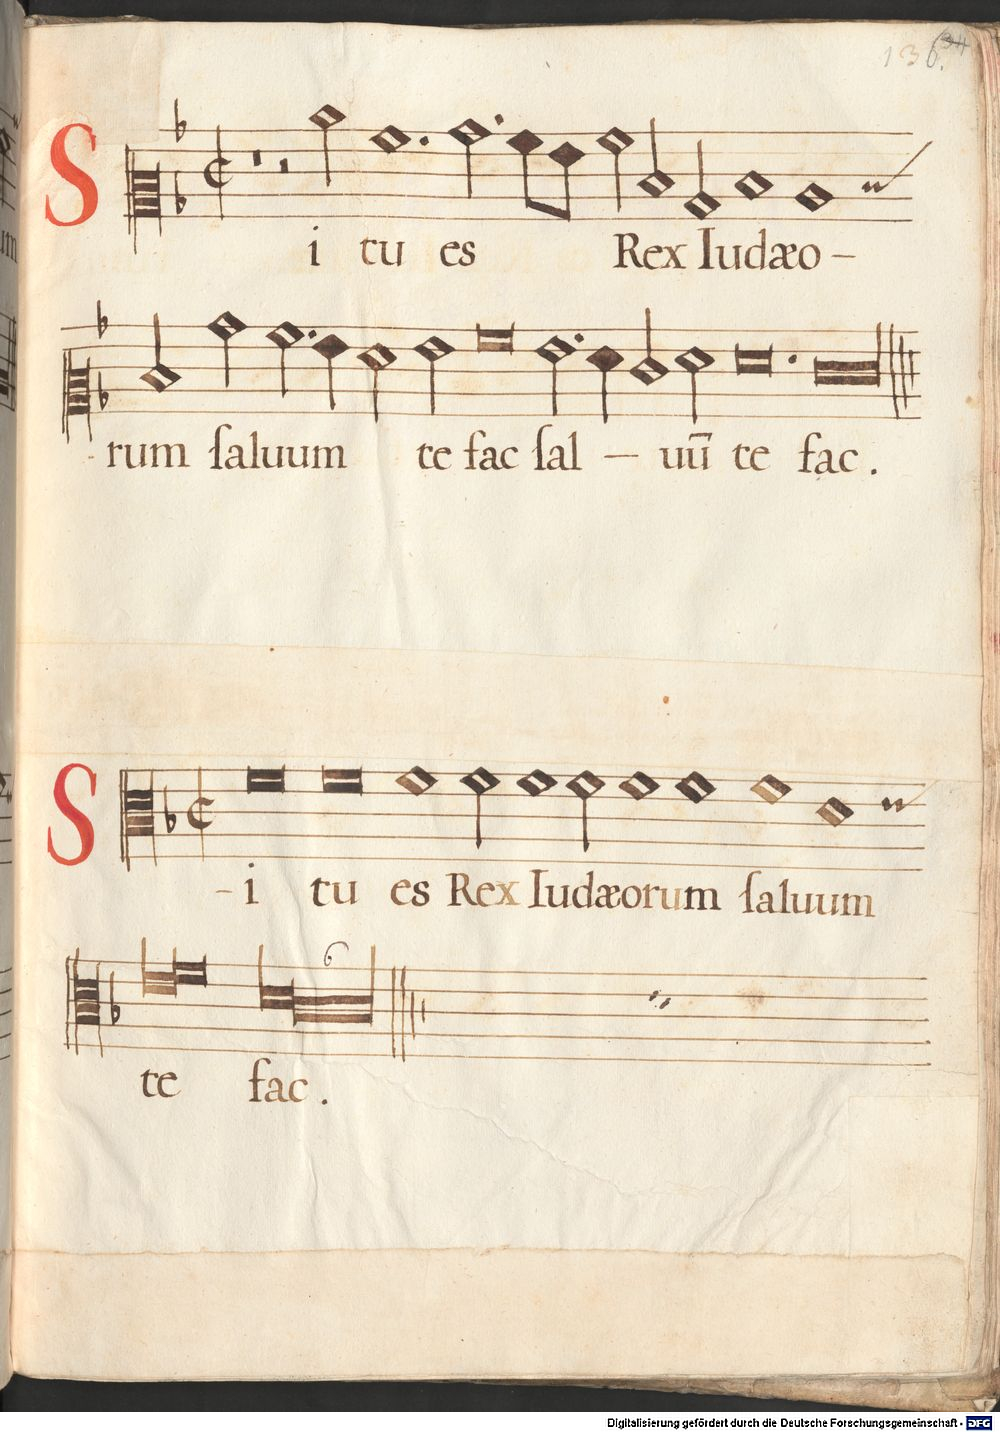 136.
34
Si tu es Rex Iudæo –
rum ſaluum te fac ſal – uū te fac .
Si tu es Rex Iudæorum ſaluum
6
te fac .
Digitalisierung gefördert durch die Deutsche Forschungsgemeinschaft - DFG